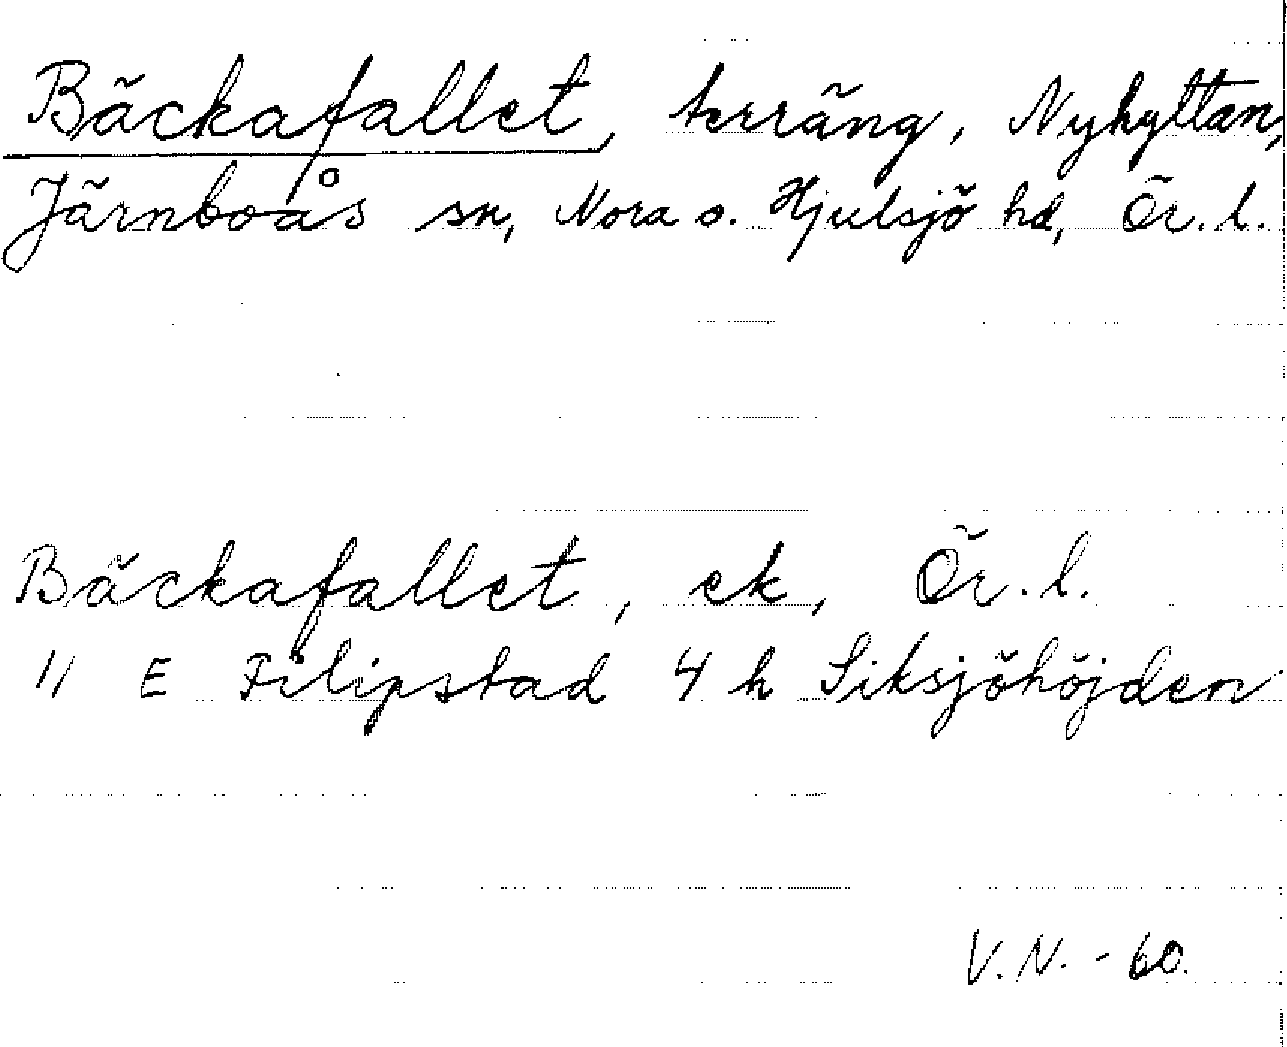 Bäckafallet, terräng, Nyhyttan,
Järnboås sn, Nora o. Hjulsjö hd, Ör. l.
Bäckafallet, ek, Ör. l.
11 E Filipstad 4 h Siksjöhöjden
V.N. - 60.